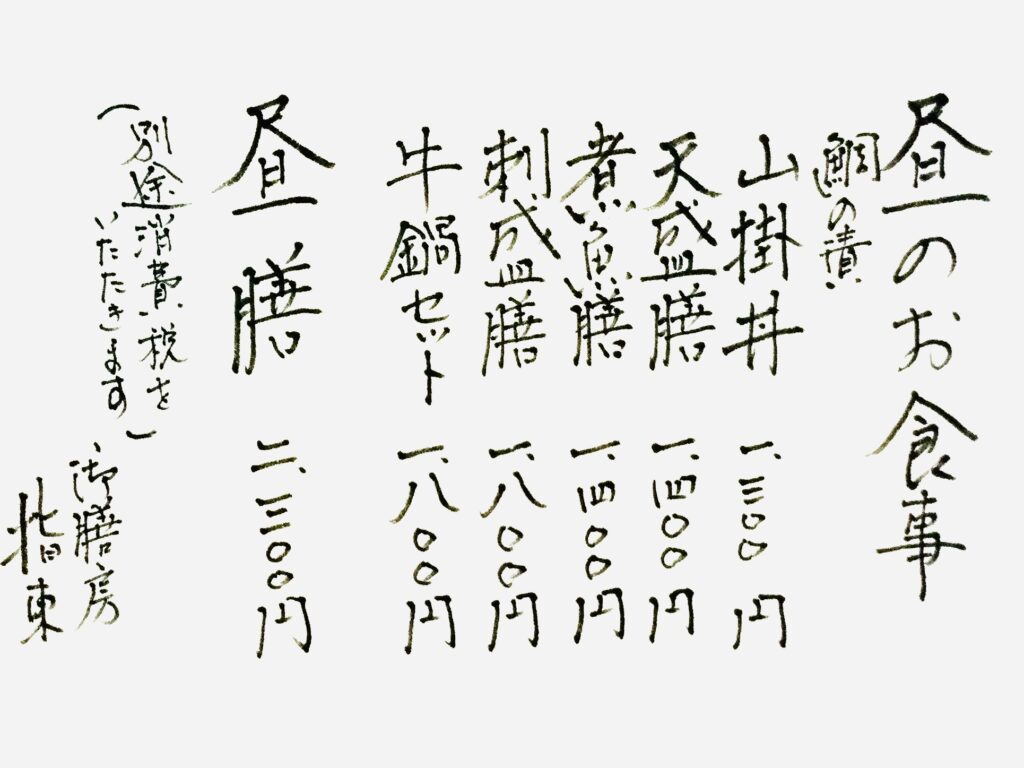 昼のお食事
鯛の漬
山掛丼 一、三〇〇円
天盛膳 一、四〇〇円
煮魚膳 一、四〇〇円
刺盛膳 一、八〇〇円
牛鍋セット 一、八〇〇円
昼膳 二、三〇〇円
(別途消費税を
いただきます)
御膳房
指東